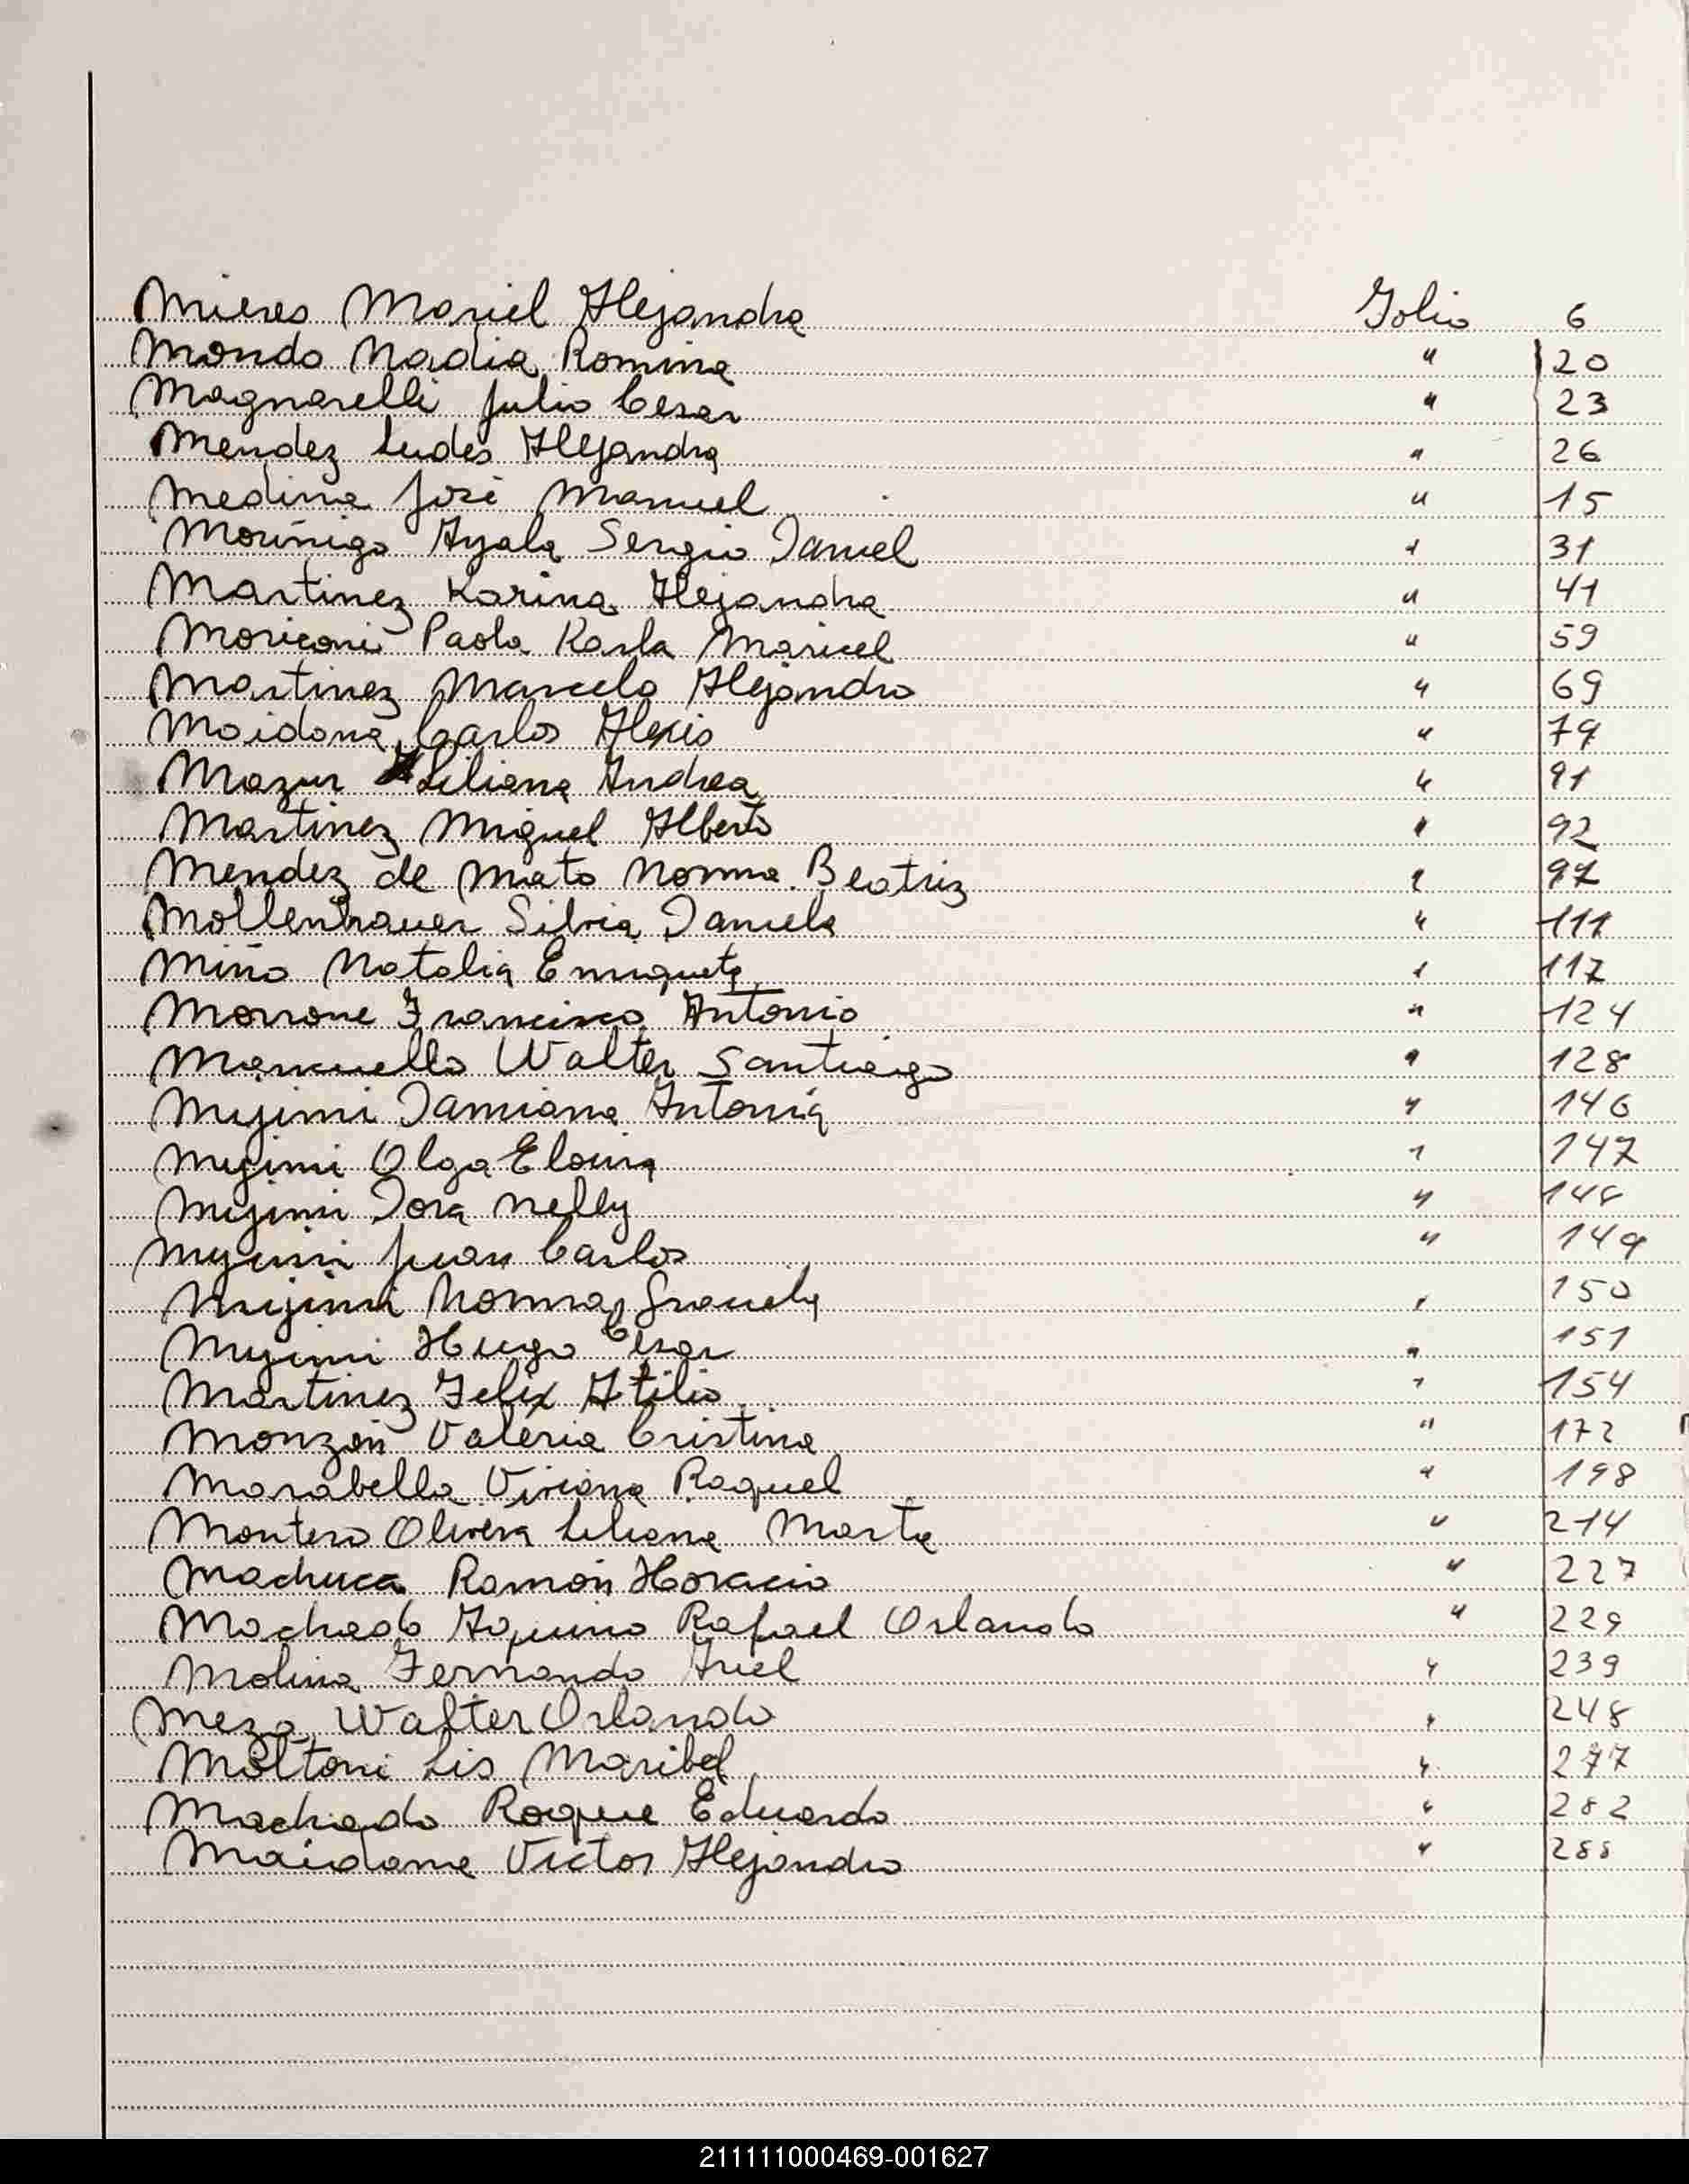 Mieres Mariel Alejandra Folio 6
Mondo Nadia Romina " 20
Magnarelli Julio Cesar " 23
Mendez Ludes Alejandra " 26
Medina José Manuel " 15
Moriñigo Ayala Sergio Daniel " 31
Martinez Karina Alejandra " 41
Moriconi Paola Karla Maricel " 59
Martinez Marcelo Alejandro " 69
Maidana Carlos Alexis " 79
Mazur Liliana Andrea " 91
Martinez Miguel Alberto " 92
Mendez de Mato Norma Beatriz " 97
Mollenhauer Silvia Daniela " 111
Miño Natalia Enriqueta " 117
Morrone Francisco Antonio " 124
Mancuello Walter Santiago " 128
Mujimi Damiana Antonia " 146
Mujimi Olga Eloina " 147
Mujimi Dora Nelly " 148
Mujimi Juan Carlos " 149
Mujimi Norma Graciela " 150
Mujimi Hugo Cesar " 151
Martinez Felix Atilio " 154
Monzón Valeria Cristina " 172
Marabella Viviana Raquel " 198
Montero Olivera Liliana Marta " 214
Machuca Ramón Horacio " 227
Machado Aquino Rafael Orlando " 229
Molina Fernando Ariel " 239
Meza Walter Orlando " 248
Moltoni Lis Maribel " 277
Machado Roque Eduardo " 282
Maidana Victor Alejandro " 288
211111000469-001627